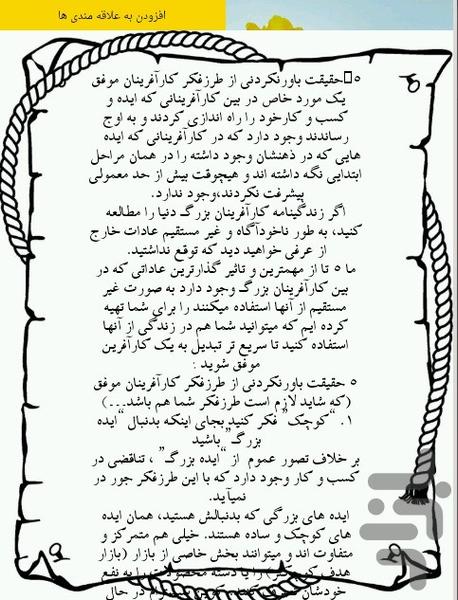 افزودن به علاقه مندی ها
۵ حقیقت باورنکردنی از طرزفکر کارآفرینان موفق
یک مورد خاص در بین کارآفرینانی که ایده و
کسب و کارخود را راه اندازی کردند و به اوج
رساندند وجود دارد که در کارآفرینانی که ایده
هایی که در ذهنشان وجود داشته را در همان مراحل
ابتدایی نگه داشته اند و هیچوقت بیش از حد معمولی
پیشرفت نکردند،وجود ندارد.
اگر زندگینامه کارآفرینان بزرگ دنیا را مطالعه
کنید، به طور ناخودآگاه و غیر مستقیم عادات خارج
از عرفی خواهید دید که توقع نداشتید.
ما ۵ تا از مهمترین و تاثیر گذارترین عاداتی که در
بین کارآفرینان بزرگ وجود دارد به صورت غیر
مستقیم از آنها استفاده میکنند را برای شما تهیه
کرده ایم که میتوانید شما هم در زندگی از آنها
استفاده کنید تا سریع تر تبدیل به یک کارآفرین
موفق شوید :
۵ حقیقت باورنکردنی از طرزفکر کارآفرینان موفق
(که شاید لازم است طرزفکر شما هم باشد…)
۱. “کوچک” فکر کنید بجای اینکه بدنبال “ایده
بزرگ” باشید
بر خلاف تصور عموم از “ایده بزرگ” ، تناقضی در
کسب و کار وجود دارد که با این طرزفکر جور در
نمیآید.
ایده های بزرگی که بدنبالش هستید، همان ایده
های کوچک و ساده هستند. خیلی هم متمرکز و
متفاوت اند و میتوانند بخش خاصی از بازار (بازار
هدف را یا دسته به نفع
خودشان در حال